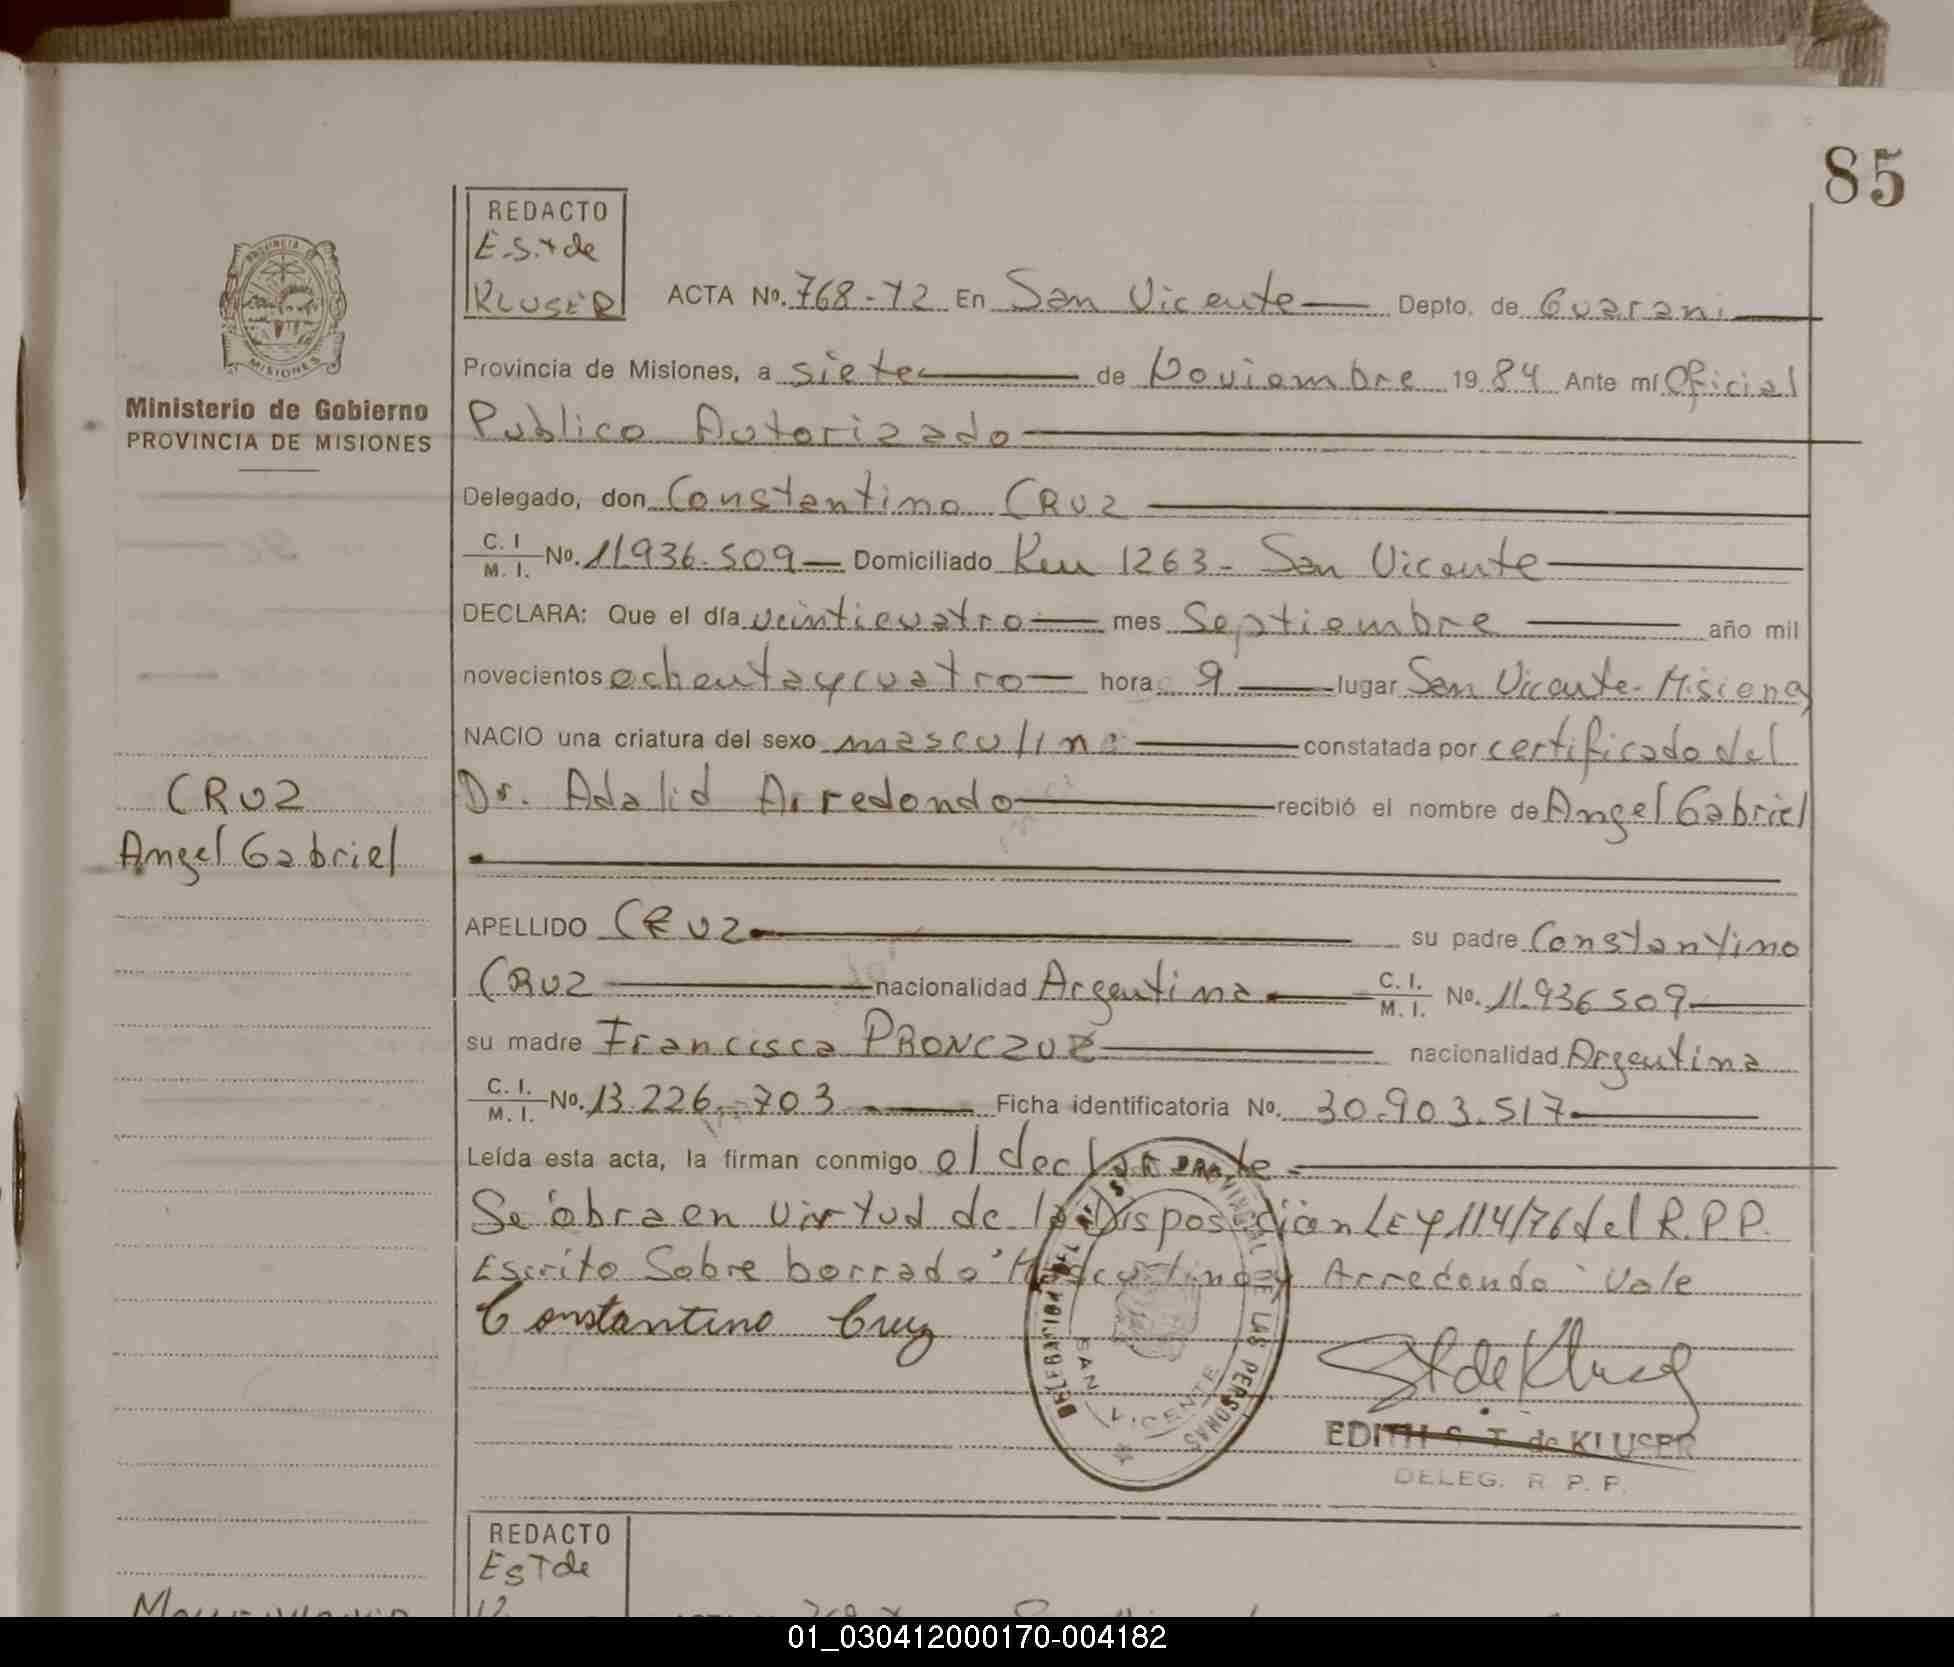 85
REDACTO
E.S.T de
KLUSER
ACTA No. 768-T2 En San Vicente Depto. de Guarani
Provincia de Misiones, a siete de Noviembre 1984 Ante mí Oficial
Ministerio de Gobierno
PROVINCIA DE MISIONES
Publico Autorizado
Delegado, don Constantino CRUZ
C. I. M. I. No. 11.936.509 Domiciliado Km 1263 - San Vicente
DECLARA: Que el día veinticuatro mes Septiembre año mil
novecientos ochenta y cuatro hora 9 lugar San Vicente - Misiones
NACIO una criatura del sexo masculino constatada por certificado del
CRUZ
Angel Gabriel
Dr. Adalid Arredondo recibió el nombre de Angel Gabriel
APELLIDO CRUZ su padre Constantino
CRUZ nacionalidad Argentina C. I. M. I. No. 11.936509
su madre Francisca PRONCZUK nacionalidad Argentina
C. I. M. I. No. 13.226.703 Ficha identificatoria No. 30.903.517
Leída esta acta, la firman conmigo el declarante
Se obra en virtud de la Disposición LEY 114/76 del R.P.P.
Escrito Sobre borrado "Masculino y Arredondo" Vale
Constantino Cruz
DELEGACION REGISTRO PROVINCIAL DE LAS PERSONAS
SAN VICENTE
EDITH S. T. de KLUSER
DELEG. R. P. P.
REDACTO
EST de
01_030412000170-004182